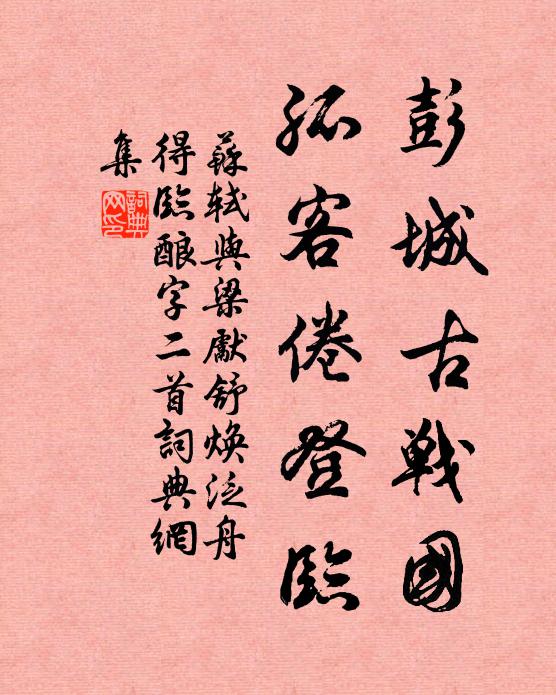 彭城古戰國
孤客倦登臨
蘇軾與梁獻舒煥泛舟
得臨釀字二首詞典網
集
詞典
网印